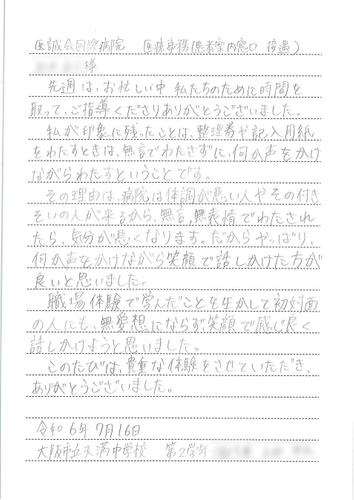 医誠会国際病院 医療事務(患者案内窓口 接遇)
様
先週は、お忙しい中 私たちのために時間を
取って、ご指導くださりありがとうございました。
私が印象に残ったことは、整理券や記入用紙
をわたすときは、無言でわたさずに、何か声をかけ
ながらわたすということです。
その理由は、病院は体調が悪い人やその付き
そいの人が来るから、無言、無表情でわたされ
たら、気分が悪くなります。だからやっぱり、
何か声をかけながら笑顔で話しかけた方が
良いと思いました。
職場体験で学んだことを生かして初対面
の人にも、無愛想にならず笑顔で感じ良く
話しかけようと思いました。
このたびは、貴重な体験をさせていただき、
ありがとうございました。
令和6年7月16日
大阪市立天満中学校 第2学年